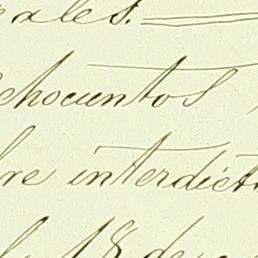 rales.
chocientos
bre interdict
18 de